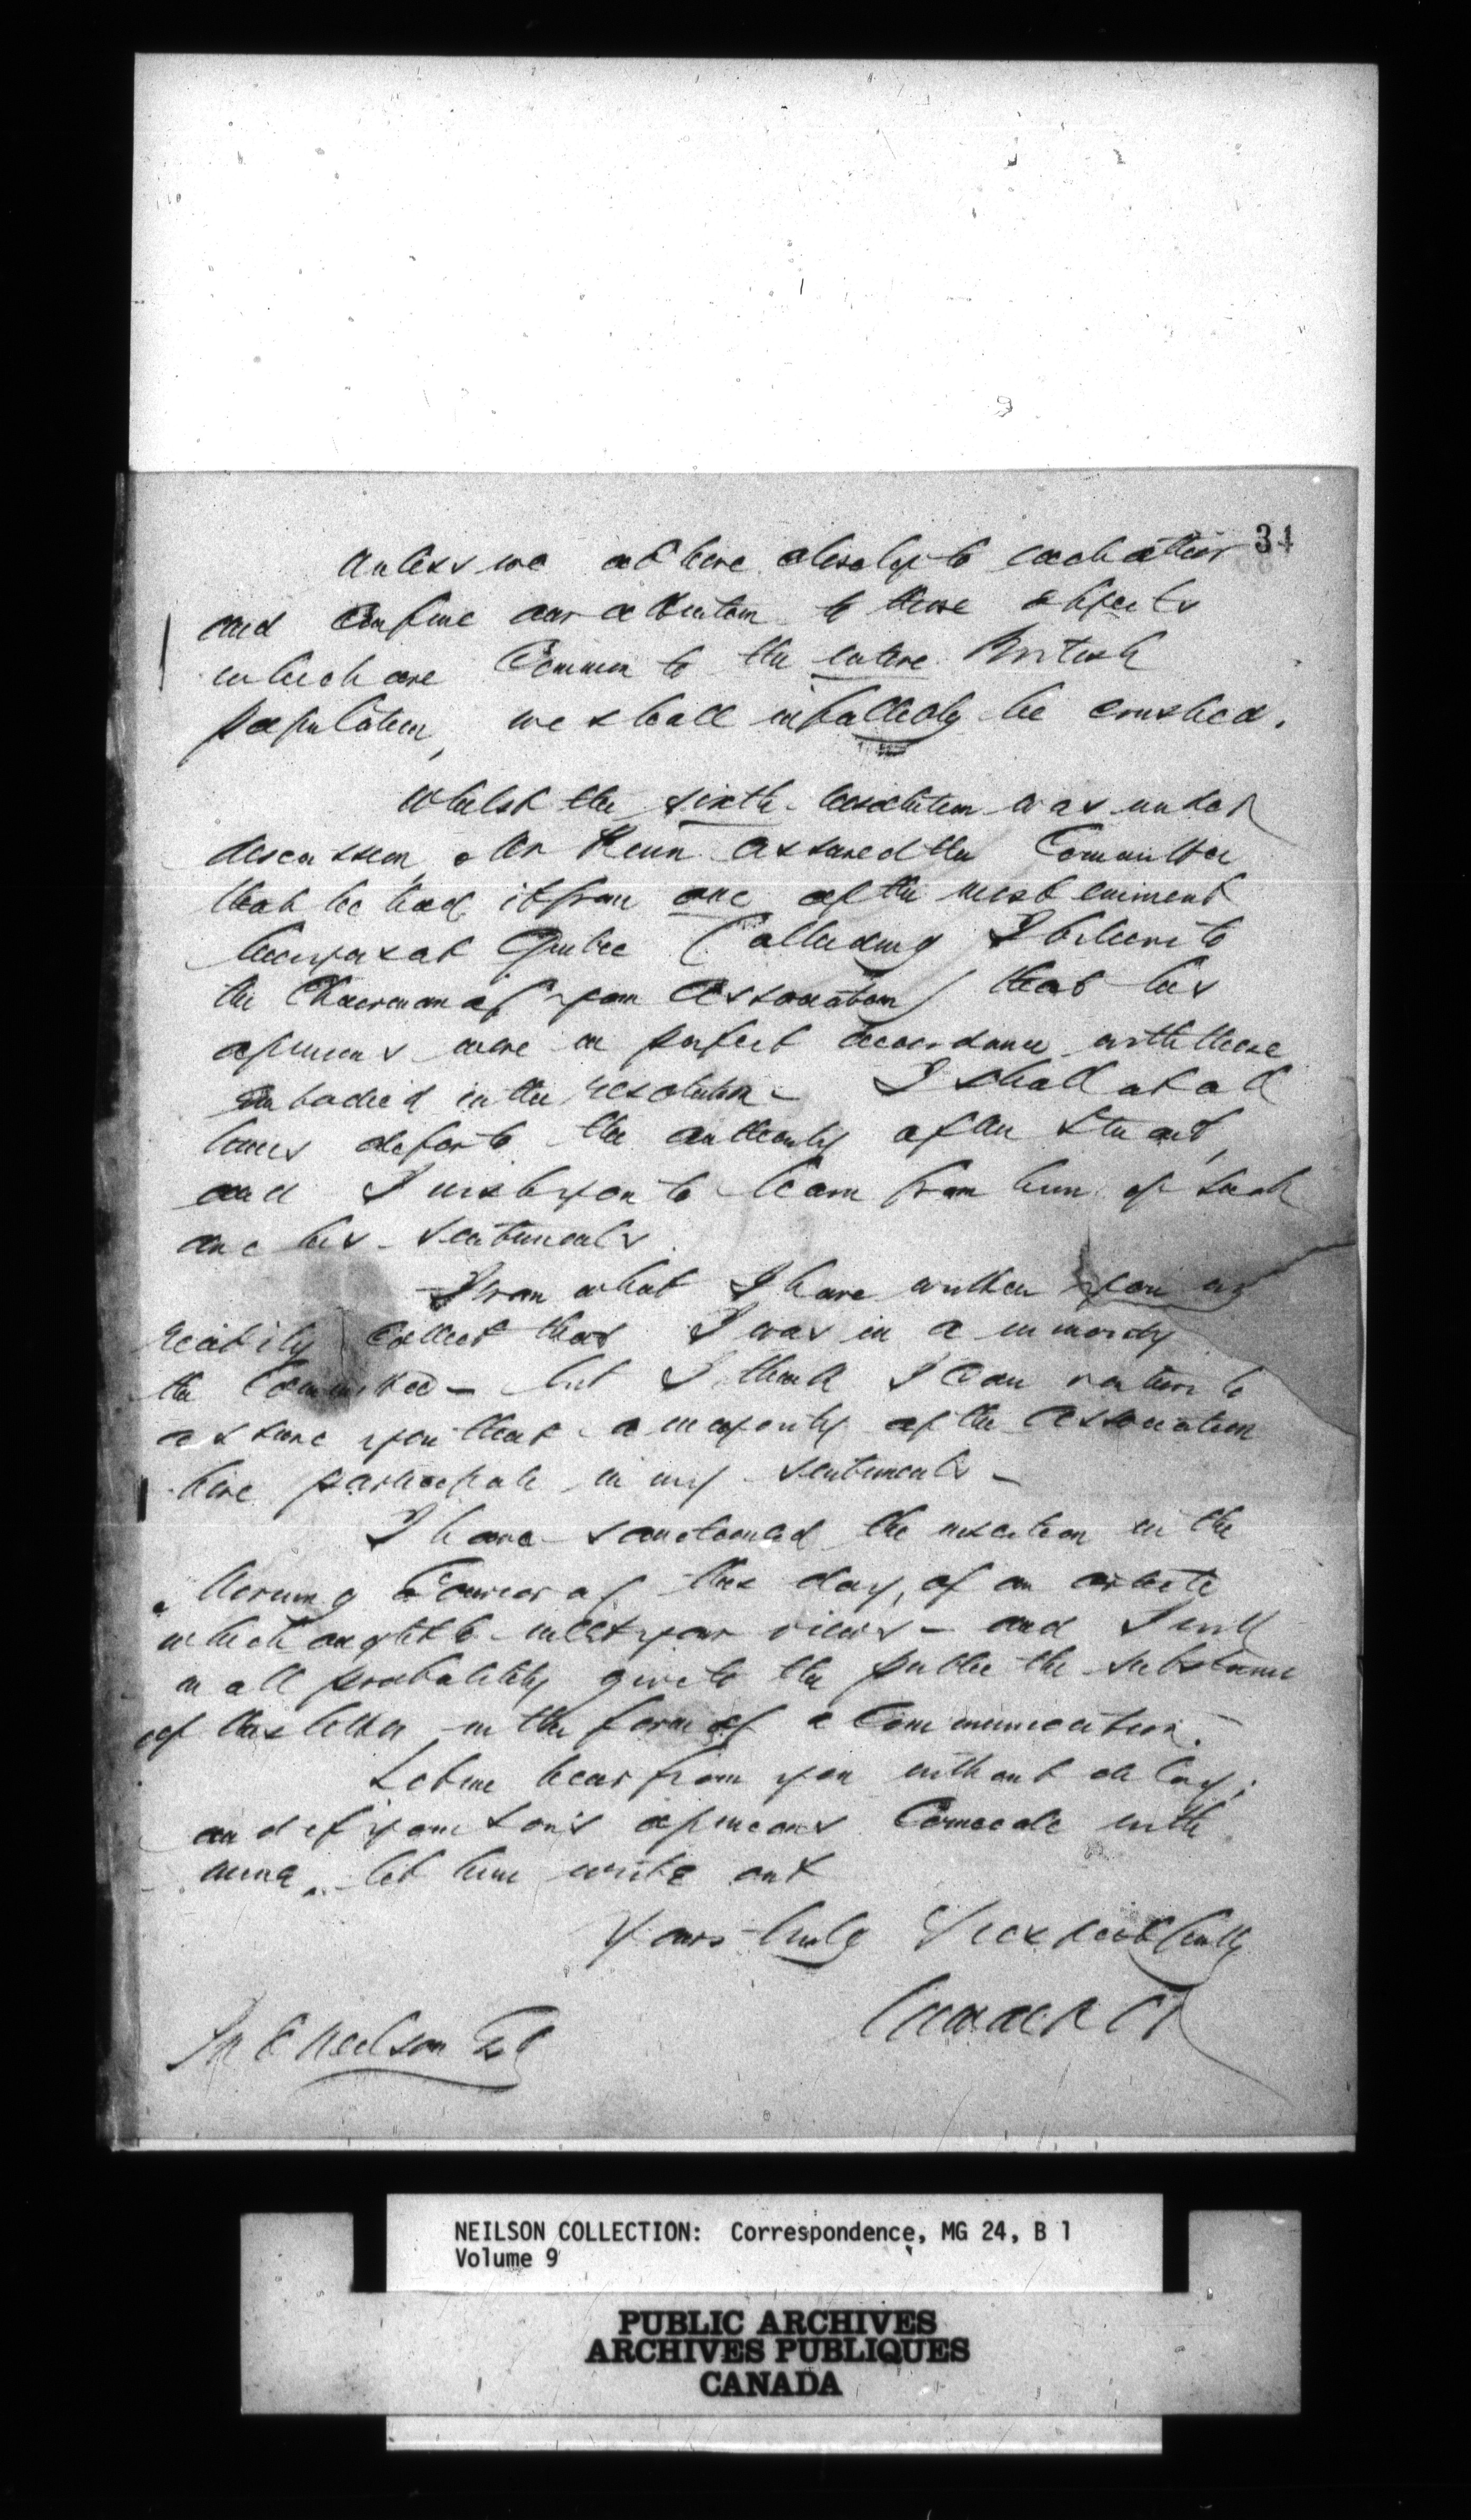 34
Unless we adhere closely to each other
and confine our attention to those objects
which are Common to the entire British
population, we shall infallibly be crushed.
Whilst the sixth resolution was under
discussion, Mr assured the Committee
that he had it from one of the most eminent
lawyers at Quebec (alluding I believe to
the Chairman of your Association) that his
opinions were in perfect accordance with those
Embodied in the resolution - I shall at all
times defer to the authority of Mr Stuart,
and I wish you to learn from him if such
are his sentiments.
From what I have written you
readily Collect that I was in a minority
the Committee - but I think I Can venture to
assure you that a majority of the Association
here participate in my sentiments -
I have sanctioned the insertion in the
Morning Courier of this day, of an article
which ought to meet your views - and I will
in all probability give to the public the substance
of this letter in the form of a Communication. -
Let me hear from you without delay;
and if your son's opinions Coincide with
mine - let him write out
Yours truly & respectfully
Neilson Esq
NEILSON COLLECTION: Correspondence, MG 24, B 1
Volume 9
PUBLIC ARCHIVES
ARCHIVES PUBLIQUES
CANADA